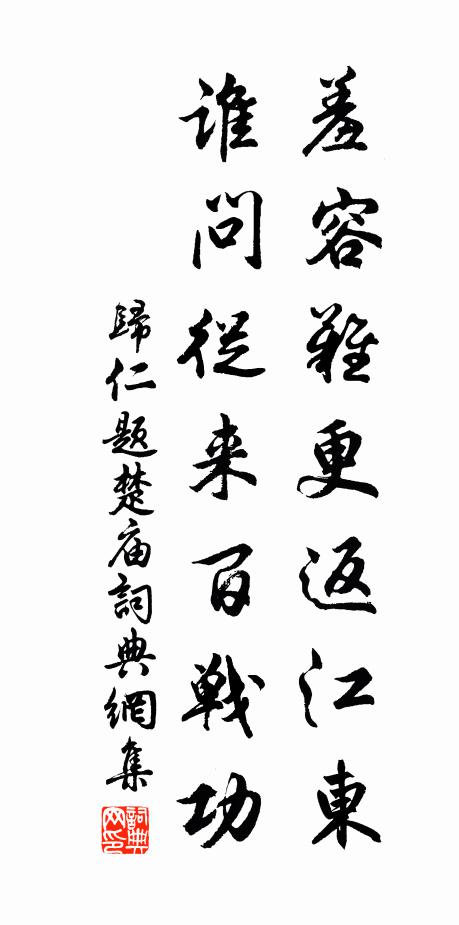 羞容難更返江東
誰問從来百戰功
歸仁題楚庙詞典網集
詞典网印